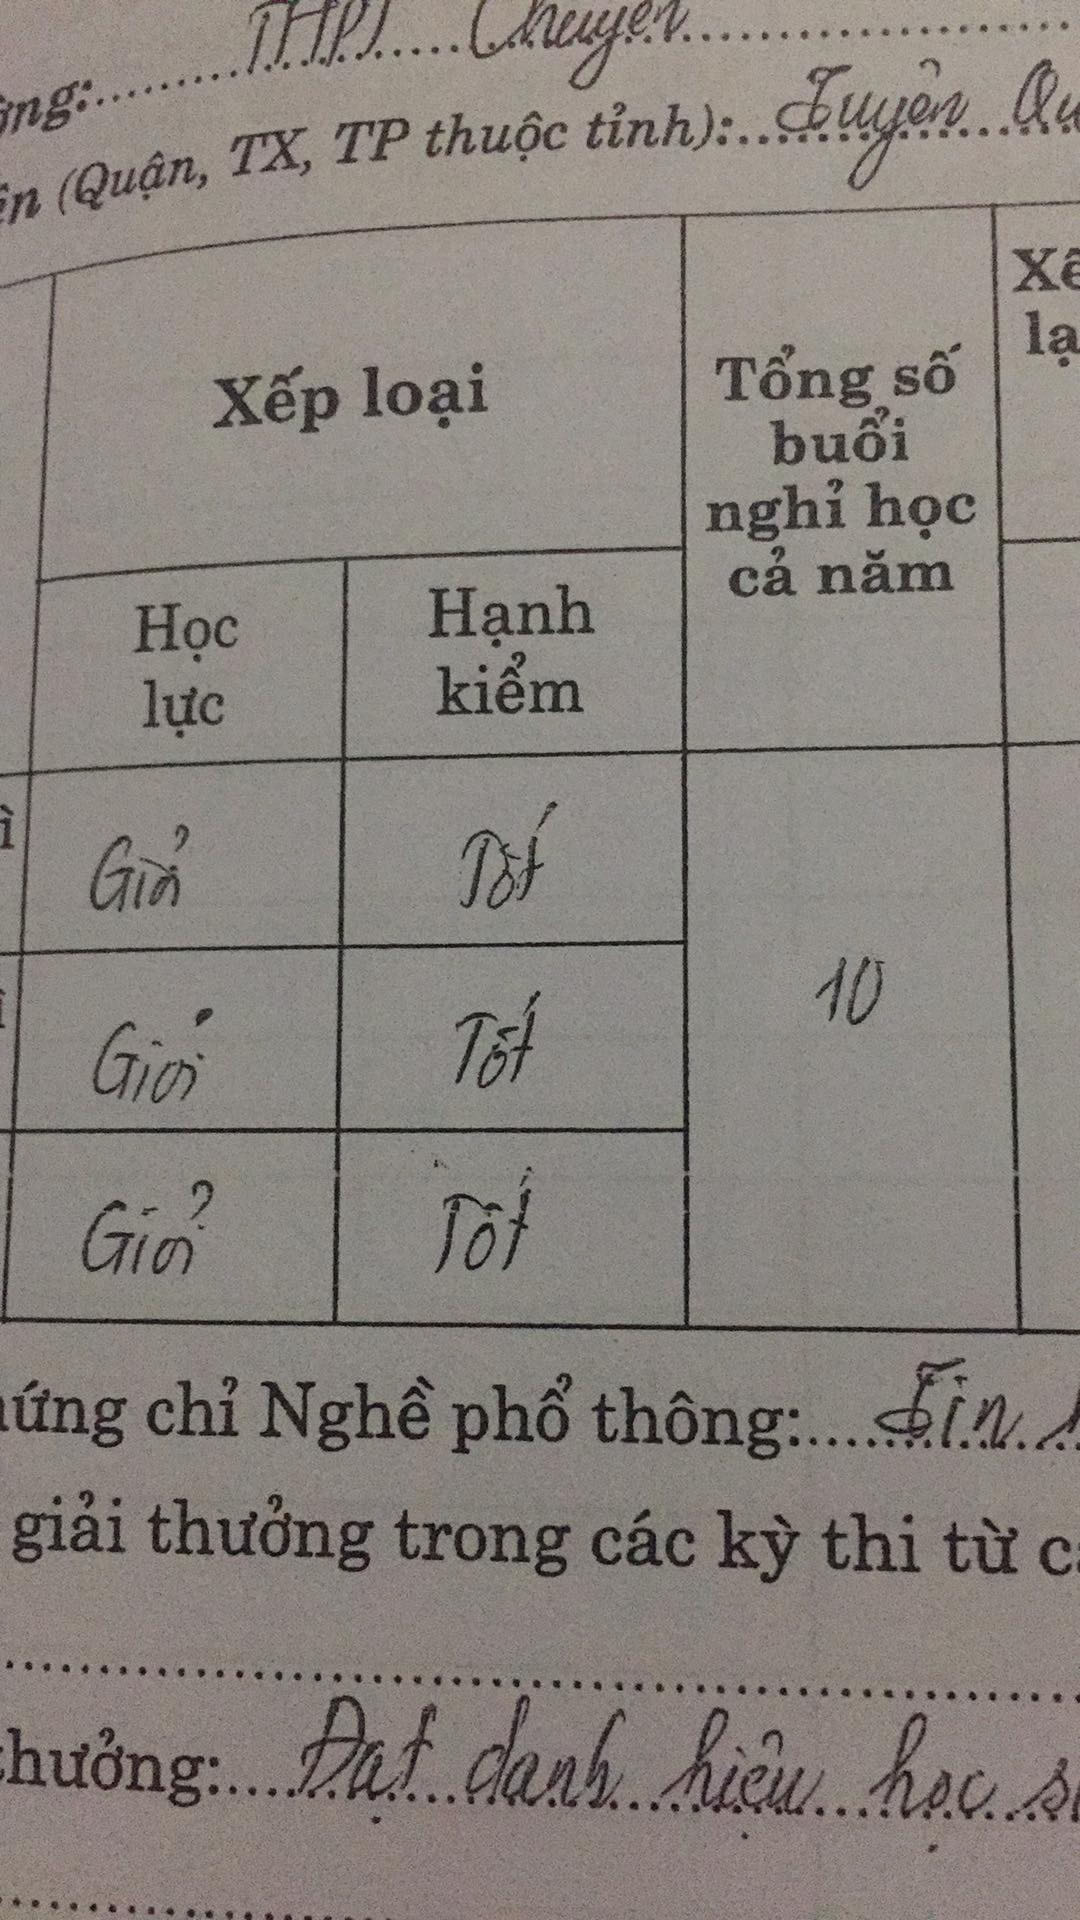 ờng:........THPT.....Chuyên
ện (Quận, TX, TP thuộc tỉnh):...Tuyên Qu
Xếp loại
Tổng số
buổi
nghỉ học
cả năm
Xế
lạ
Học
lực
Hạnh
kiểm
ì
Giỏi
Tốt
10
Giỏi
Tốt
Giỏi
Tốt
hứng chỉ Nghề phổ thông:....Tin h
giải thưởng trong các kỳ thi từ c
thưởng:....Đạt danh hiệu học s